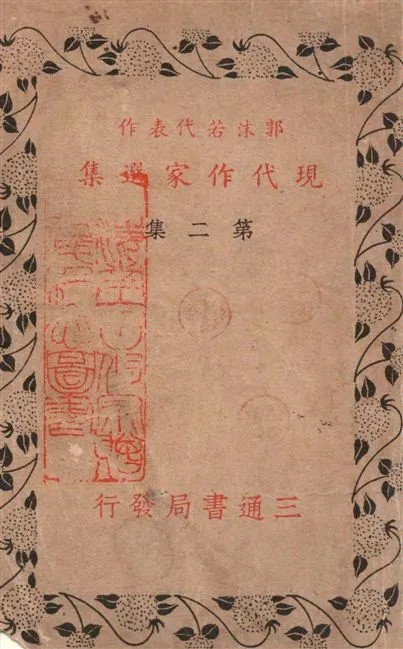 郭沫若代表作
現代作家選集
第二集
三通書局發行